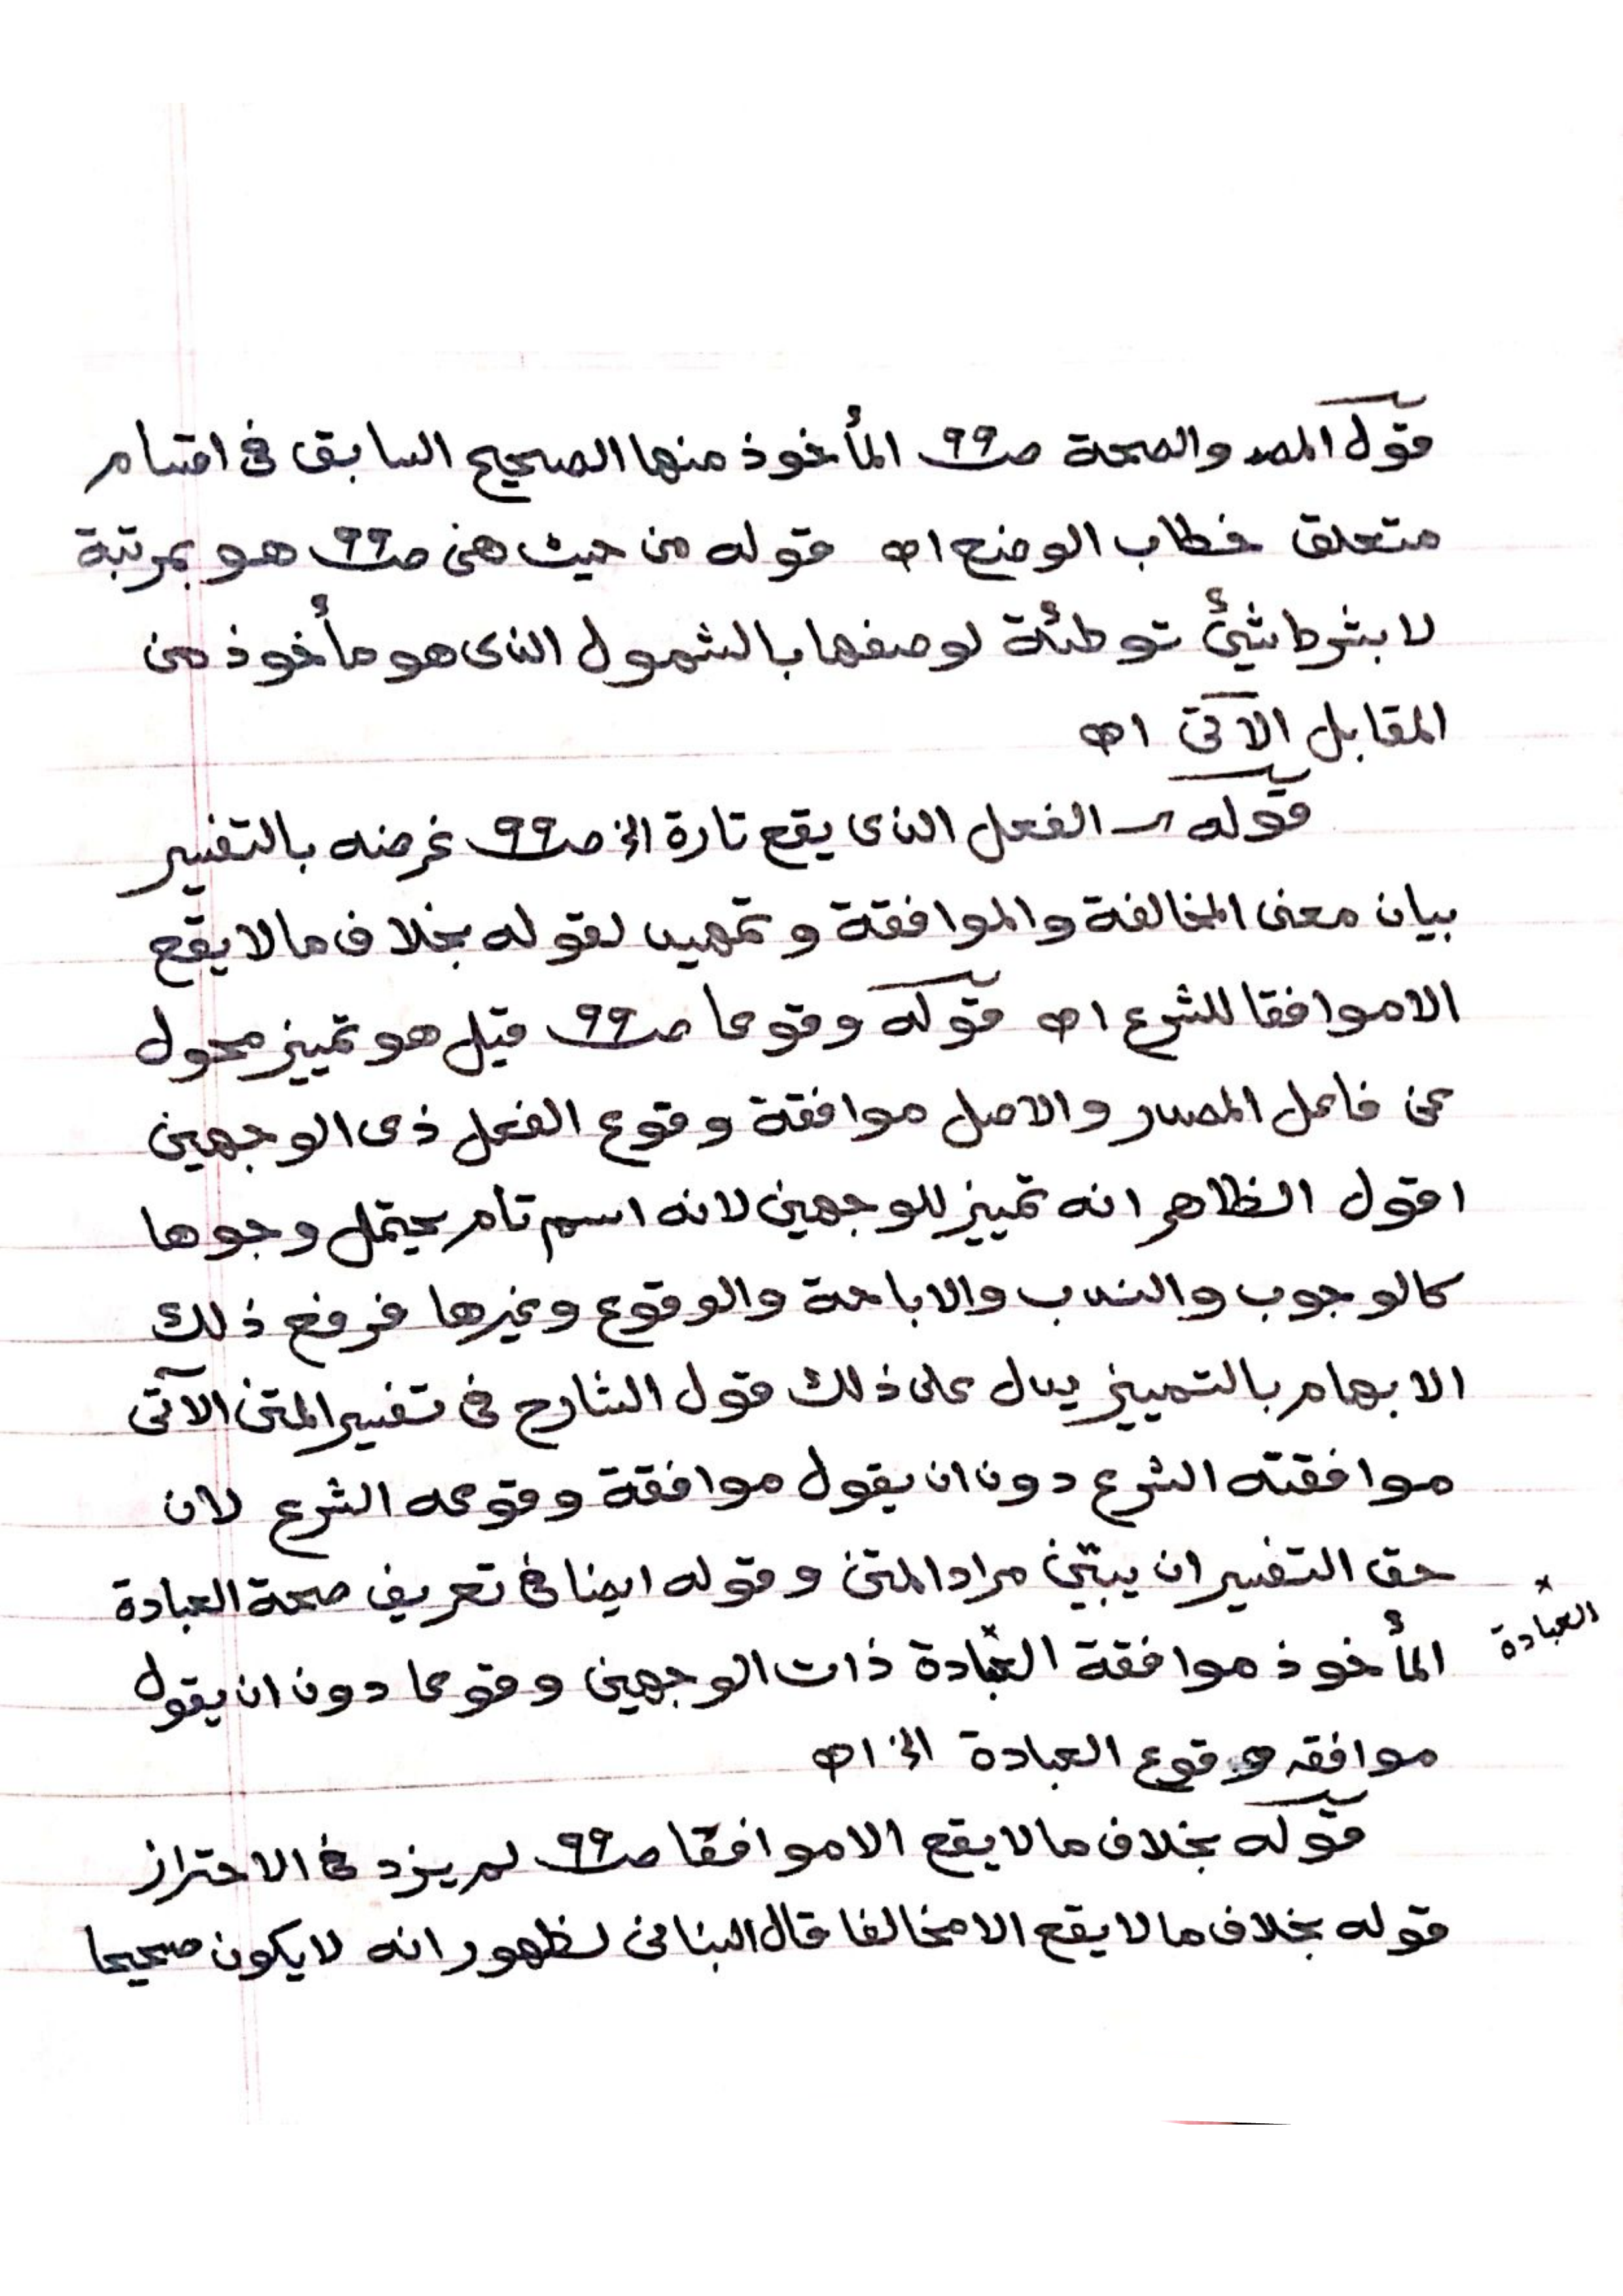 قوله المصـ والصحة صـ٩٩ـ المأخوذ منها الصحيح السابق فى اقسام
متعلق خطاب الوضع اهـ قوله من حيث هى صـ٩٩ـ هو بمرتبة
لا بشرط شيئ توطئة لوصفها بالشمول الذى هو مأخوذ من
المقابل الآتى اهـ
قوله الفعل الذى يقع تارة الخ صـ٩٩ـ غرضه بالتفسير
بيان معنى المخالفة والموافقة وتمهيد لقوله بخلاف ما لا يقع
الا موافقا للشرع اهـ قوله وقوعا صـ٩٩ـ قيل هو تمييز محول
عن فاعل المصدر والاصل موافقة وقوع الفعل ذى الوجهين
اقول الظاهر انه تمييز للوجهين لانه اسم تام يحتمل وجوها
كالوجوب والندب والاباحة والوقوع وغيرها فرفع ذلك
الابهام بالتمييز يدل على ذلك قول الشارح فى تفسير المتن الآتى
موافقته الشرع دون ان يقول موافقة وقوعه الشرع لان
حق التفسير ان يبيّن مراد المتن وقوله ايضا فى تعريف صحة العبادة
المأخوذ موافقة العبادة ذات الوجهين وقوعا دون ان يقول
العبادة
موافقه وقوع العبادة الخ اهـ
قوله بخلاف ما لا يقع الا موافقا صـ٩٩ـ لم يزد فى الاحتراز
قوله بخلاف ما لا يقع الا مخالفا قال البنانى لظهور انه لا يكون صحيحا